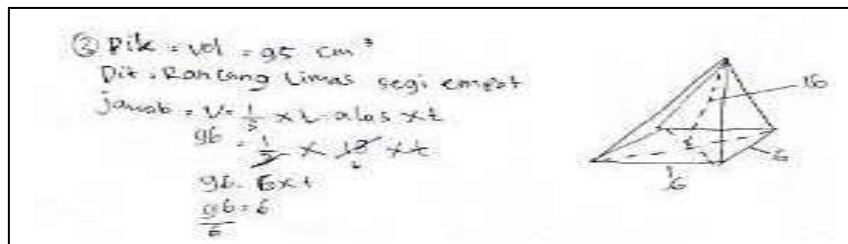 ② Dik = vol = 95 cm³
Dit = Rancang Limas segi empat
Jawab = V = 1/3 x L. alas x t
96 = 1/3 x 18 x t
96 = 6 x t
96/6 = 6
16
6
6